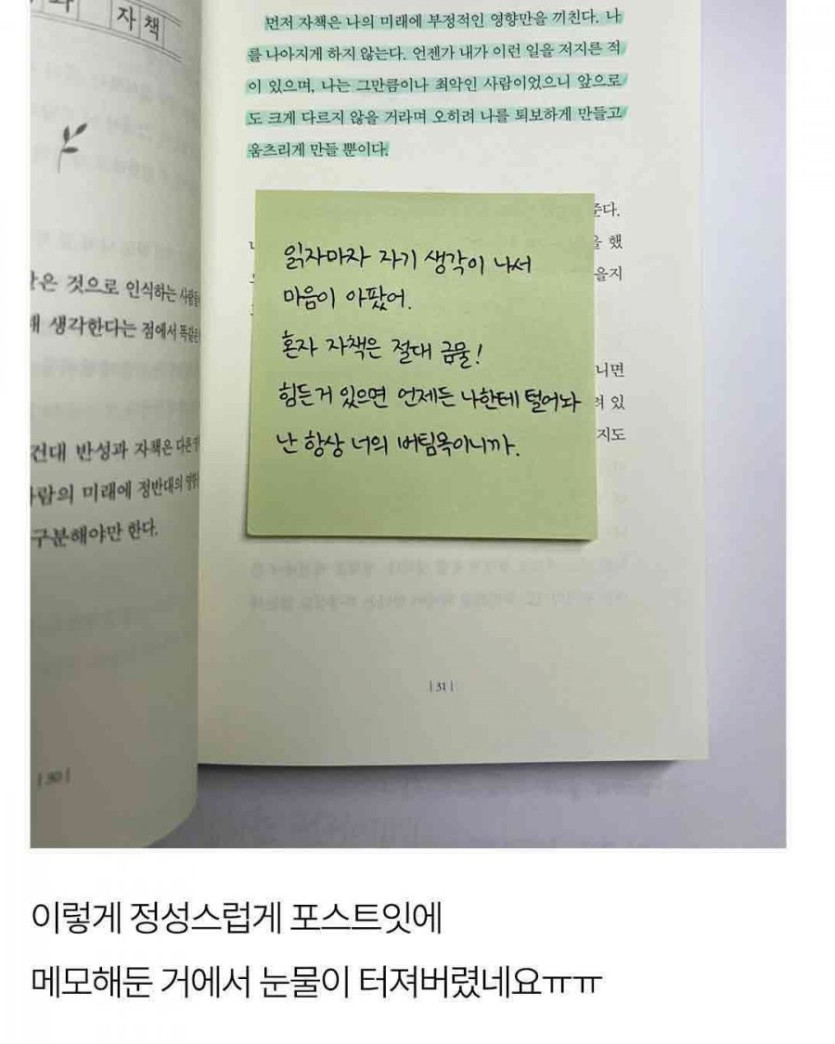 자책
먼저 자책은 나의 미래에 부정적인 영향만을 끼친다. 나
를 나아지게 하지 않는다. 언젠가 내가 이런 일을 저지른 적
이 있으며, 나는 그만큼이나 최악인 사람이었으니 앞으로
도 크게 다르지 않을 거라며 오히려 나를 퇴보하게 만들고
움츠리게 만들 뿐이다.
것으로 인식하는
생각한다는 점에서
반성과 자책은
미래에 정반대의
구분해야만 한다.
| 30 |
읽자마자 자기 생각이 나서
마음이 아팠어.
혼자 자책은 절대 금물!
힘든거 있으면 언제든 나한테 털어놔
난 항상 너의 버팀목이니까.
했
있
| 31 |
이렇게 정성스럽게 포스트잇에
메모해둔 거에서 눈물이 터져버렸네요ㅠㅠ